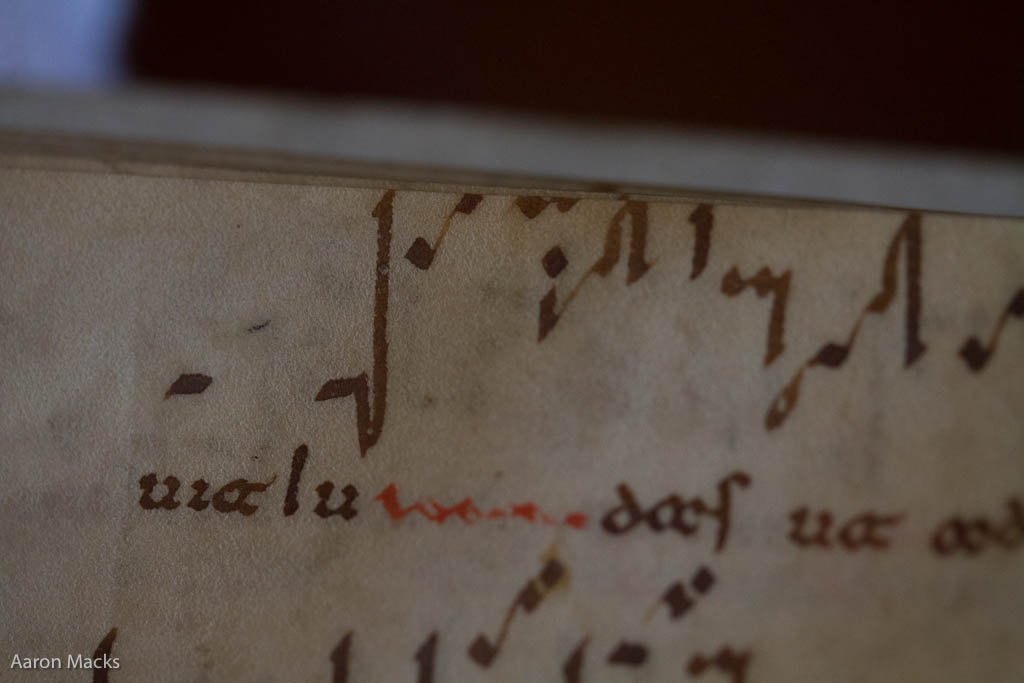 uia lu das ua
Aaron Macks